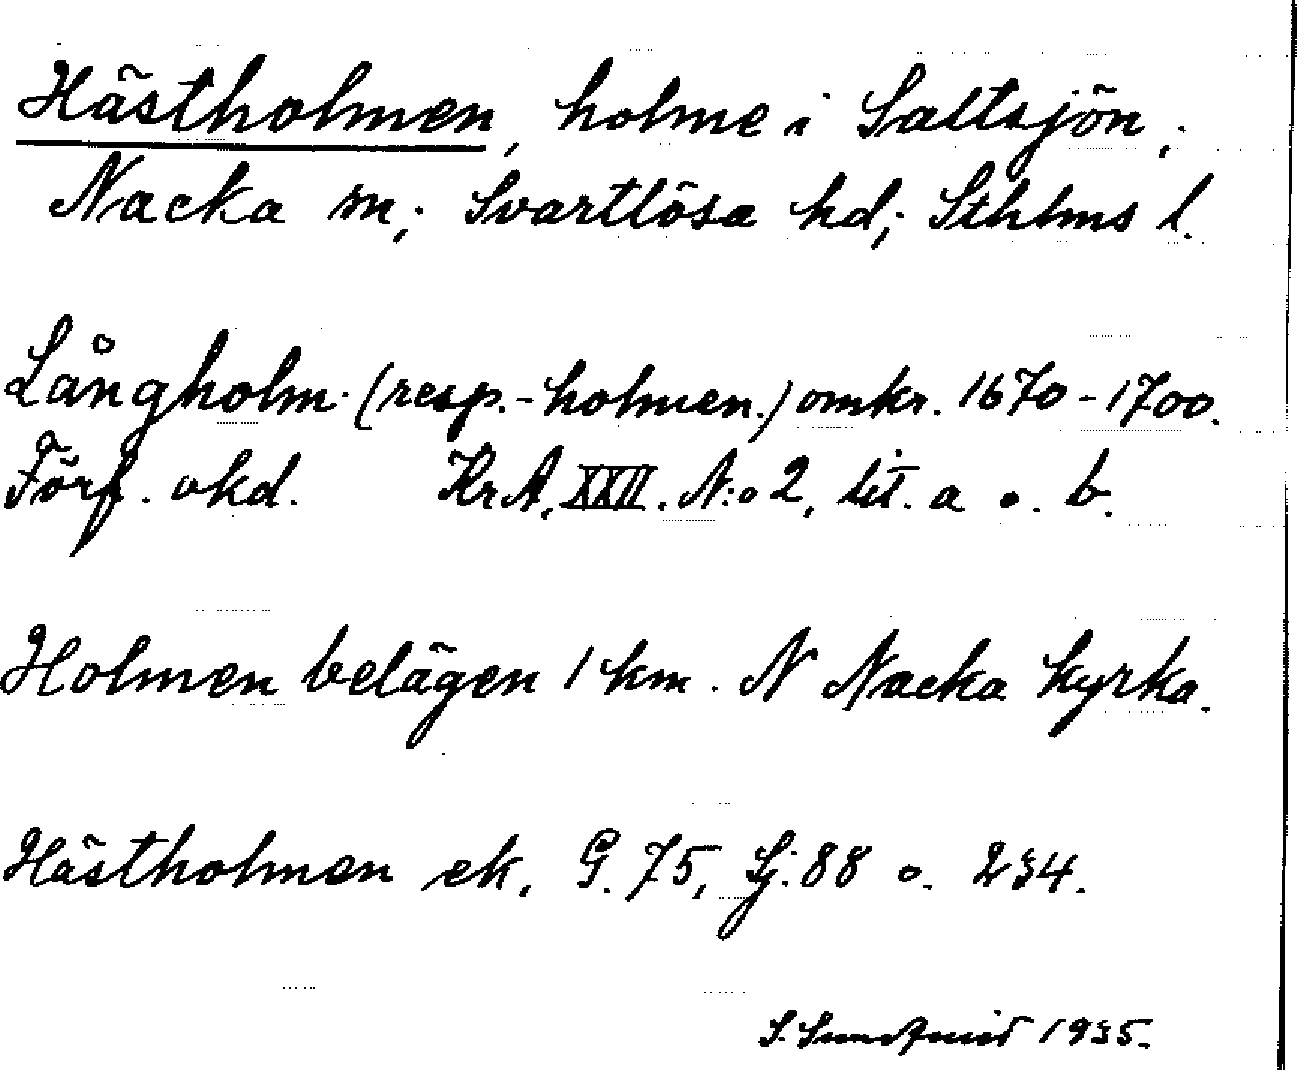 Hästholmen, holme i Saltsjön,
Nacka sn; Svartlösa hd; Sthlms l.
Långholm (resp. -holmen.) omkr. 1670-1700.
Förf. okd. KrA, XXII. N:o 2, lit. a o. b.
Holmen belägen 1 km. N Nacka kyrka.
Hästholmen ek. G. 75, Sj: 88 o. 234.
S. 1935.